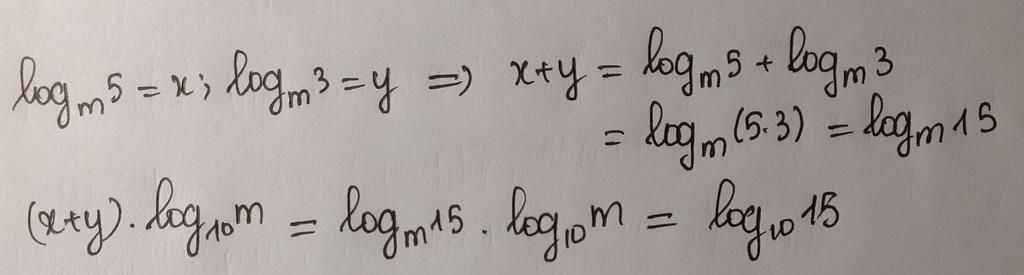 logₘ5 = x; logₘ3 = y ⇒ x+y = logₘ5 + logₘ3
= logₘ(5.3) = logₘ15
(x+y). log₁₀m = logₘ15 . log₁₀m = log₁₀15